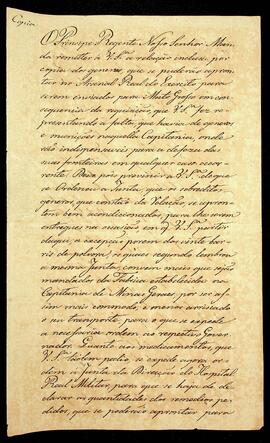 Copia
O Principe Regente Nosso Senhor Man-
da remetter a V.S.ª a relação inclusa por
copia dos generos, que se puderão apron-
tar no Arsenal Real do Exercito para
serem enviados para Mato Grosso em con-
sequencia da requisição, que V.S.ª fez re-
prezentando a falta, que havia de generos
e munições naquella Capitania, onde
são indispensaveis para a defeza das
suas fronteiras em qualquer caso occor-
rente. Posso pois prevenir a V.S.ª de que
se Ordenou á Junta, que os sobreditos
generos, que constão da Relação, se apron-
tem bem acondicionados, para lhe serem
entregues na occazião em q V.S.ª partir
daqui, a excepção porem dos vinte bar-
ris de polvora, os quaes segundo lembra
a mesma Junta, convem mais que sejão
mandados da Fabrica estabelecida na
Capitania de Minas Geraes, por ser as-
sim mais commodo, e menos arriscado
o seu transporte, para o que se expede
a necessaria ordem ao respectivo Gover-
nador. Quanto aos medicamentos, que
V.S.ª tambem pedio, se expede agora or-
dem á Junta da Direcção do Hospital
Real Militar, para que se haja de de-
clarar as quantidades dos remedios pe-
didos, que se poderão apromptar para